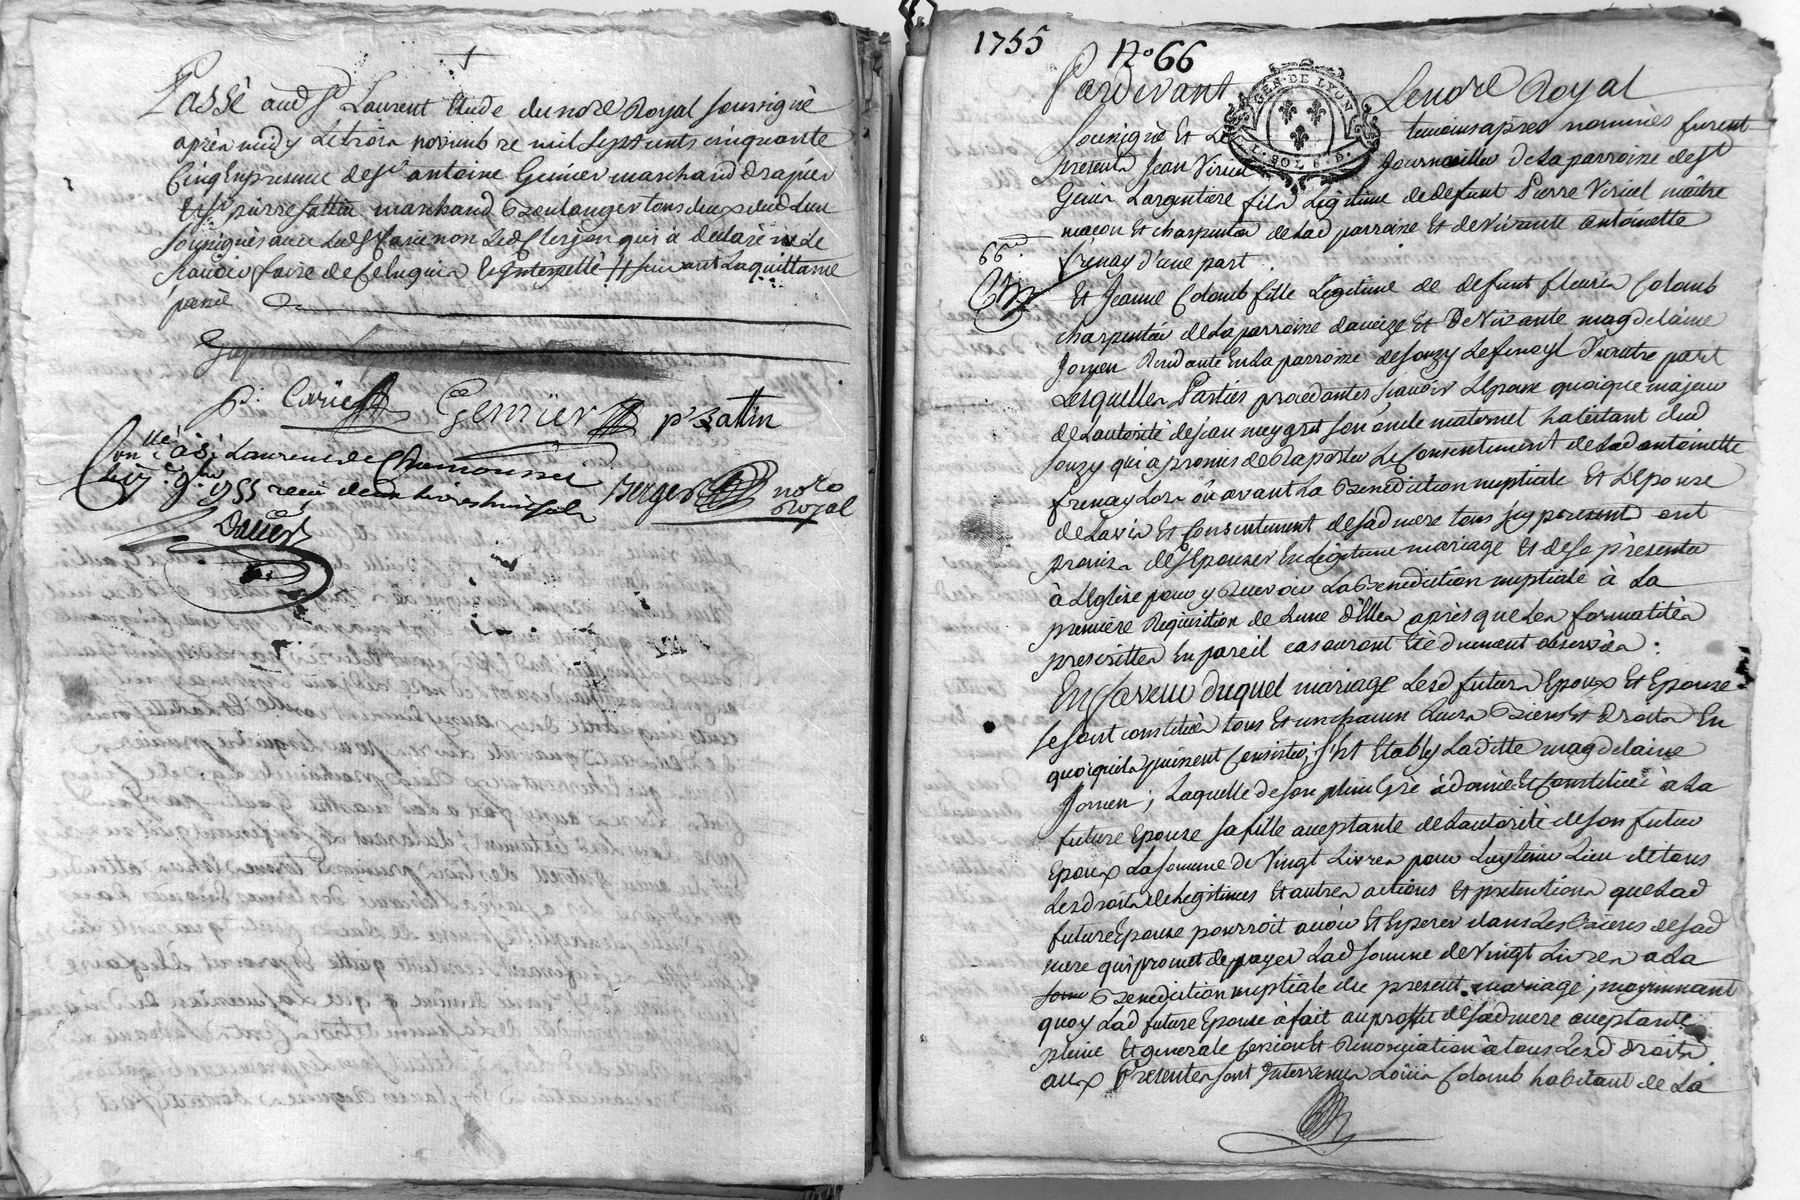 Passé aud St Laurent Etude du nore Royal soussigné
après midy Le trois novembre mil sept cents cinquante
Cinq En presence de sr antoine Genier marchand Drapier
et sr pierre sattin marchand Boulanger tous deux dud lieu
soussignès avec Led Carie non Led Clerjon qui a declaré ne Le
scavoir faire de Ce Enquis Et Interpellé // suivant La quittance
passé
P. Carie Gennier p. Sattin
Conllé à St Laurent de Chamousset
Le 17e 9bre 1755 reçu deux livres huit sols Berger nore
Royal
1755 No 66
Pardevant Le nore Royal
GEN. DE LYON
2. SOLS. D.
soussignè Et Les temoins apres nommès furent
presents Jean Viricel Journaillier de La parroisse de st
Genis Largentiere fils Legitime de defunt Pierre Viricel maitre
macon Et charpentier de Lad parroisse Et de Vivante antoinette
66e frenay d'une part
Et Jeanne Colomb fille Legitime de defunt fleuris Colomb
charpentier de La parroisse daveize Et De Vivante magdelaine
Jomen Residante En La parroisse de souzy Le Lerpenoyl D'autre part
Lesquelles Parties procedantes scavoir Lepoux quoique majeur
de L'autorité de jean meygret son oncle maternel habitant dud
souzy qui a promis de Raporter Le Consentement de Lad antoinette
frenay Lors ou avant La Benediction nuptiale Et L'Epouse
de Lavis Et Consentement de sad mere tous jcy present ont
promis de s'Epouser En Legitime mariage Et de se présenter
à L'Eglise pour y Recevoir La Benediction nuptiale à La
premiere Requisition de Lune d'Elles après que Les formalités
prescrittes En pareil cas auront Eté dument observées :
En faveur duquel mariage Lesd futurs Epoux Et Epouse
se sont constitués tous Et un chacun Leurs Biens Et droits En
quoiqu'ils puissent Consister ; s'Est Etably Laditte magdelaine
Jomen ; Laquelle de son plein Grè à donné Et Constitué à La
future Epouse sa fille acceptante de Lautorité de son futur
Epoux La somme de Vingt Livres pour Luy tenir Lieu de tous
Les droits de Legitimes Et autres actions Et pretentions que Lad
future Epouse pourroit avoir Et Esperer dans Les Biens de sad
mere qui promet de payer Lad somme de Vingt Livres a La
Benediction nuptiale du present mariage ; moyennant
quoy Lad future Epouse à fait au proffit de sad mere acceptante
pleine Et generale Cession Et Renonciation à tous Lesd droits
aux Presentes sont Intervenus Loüis Colomb habitant de La